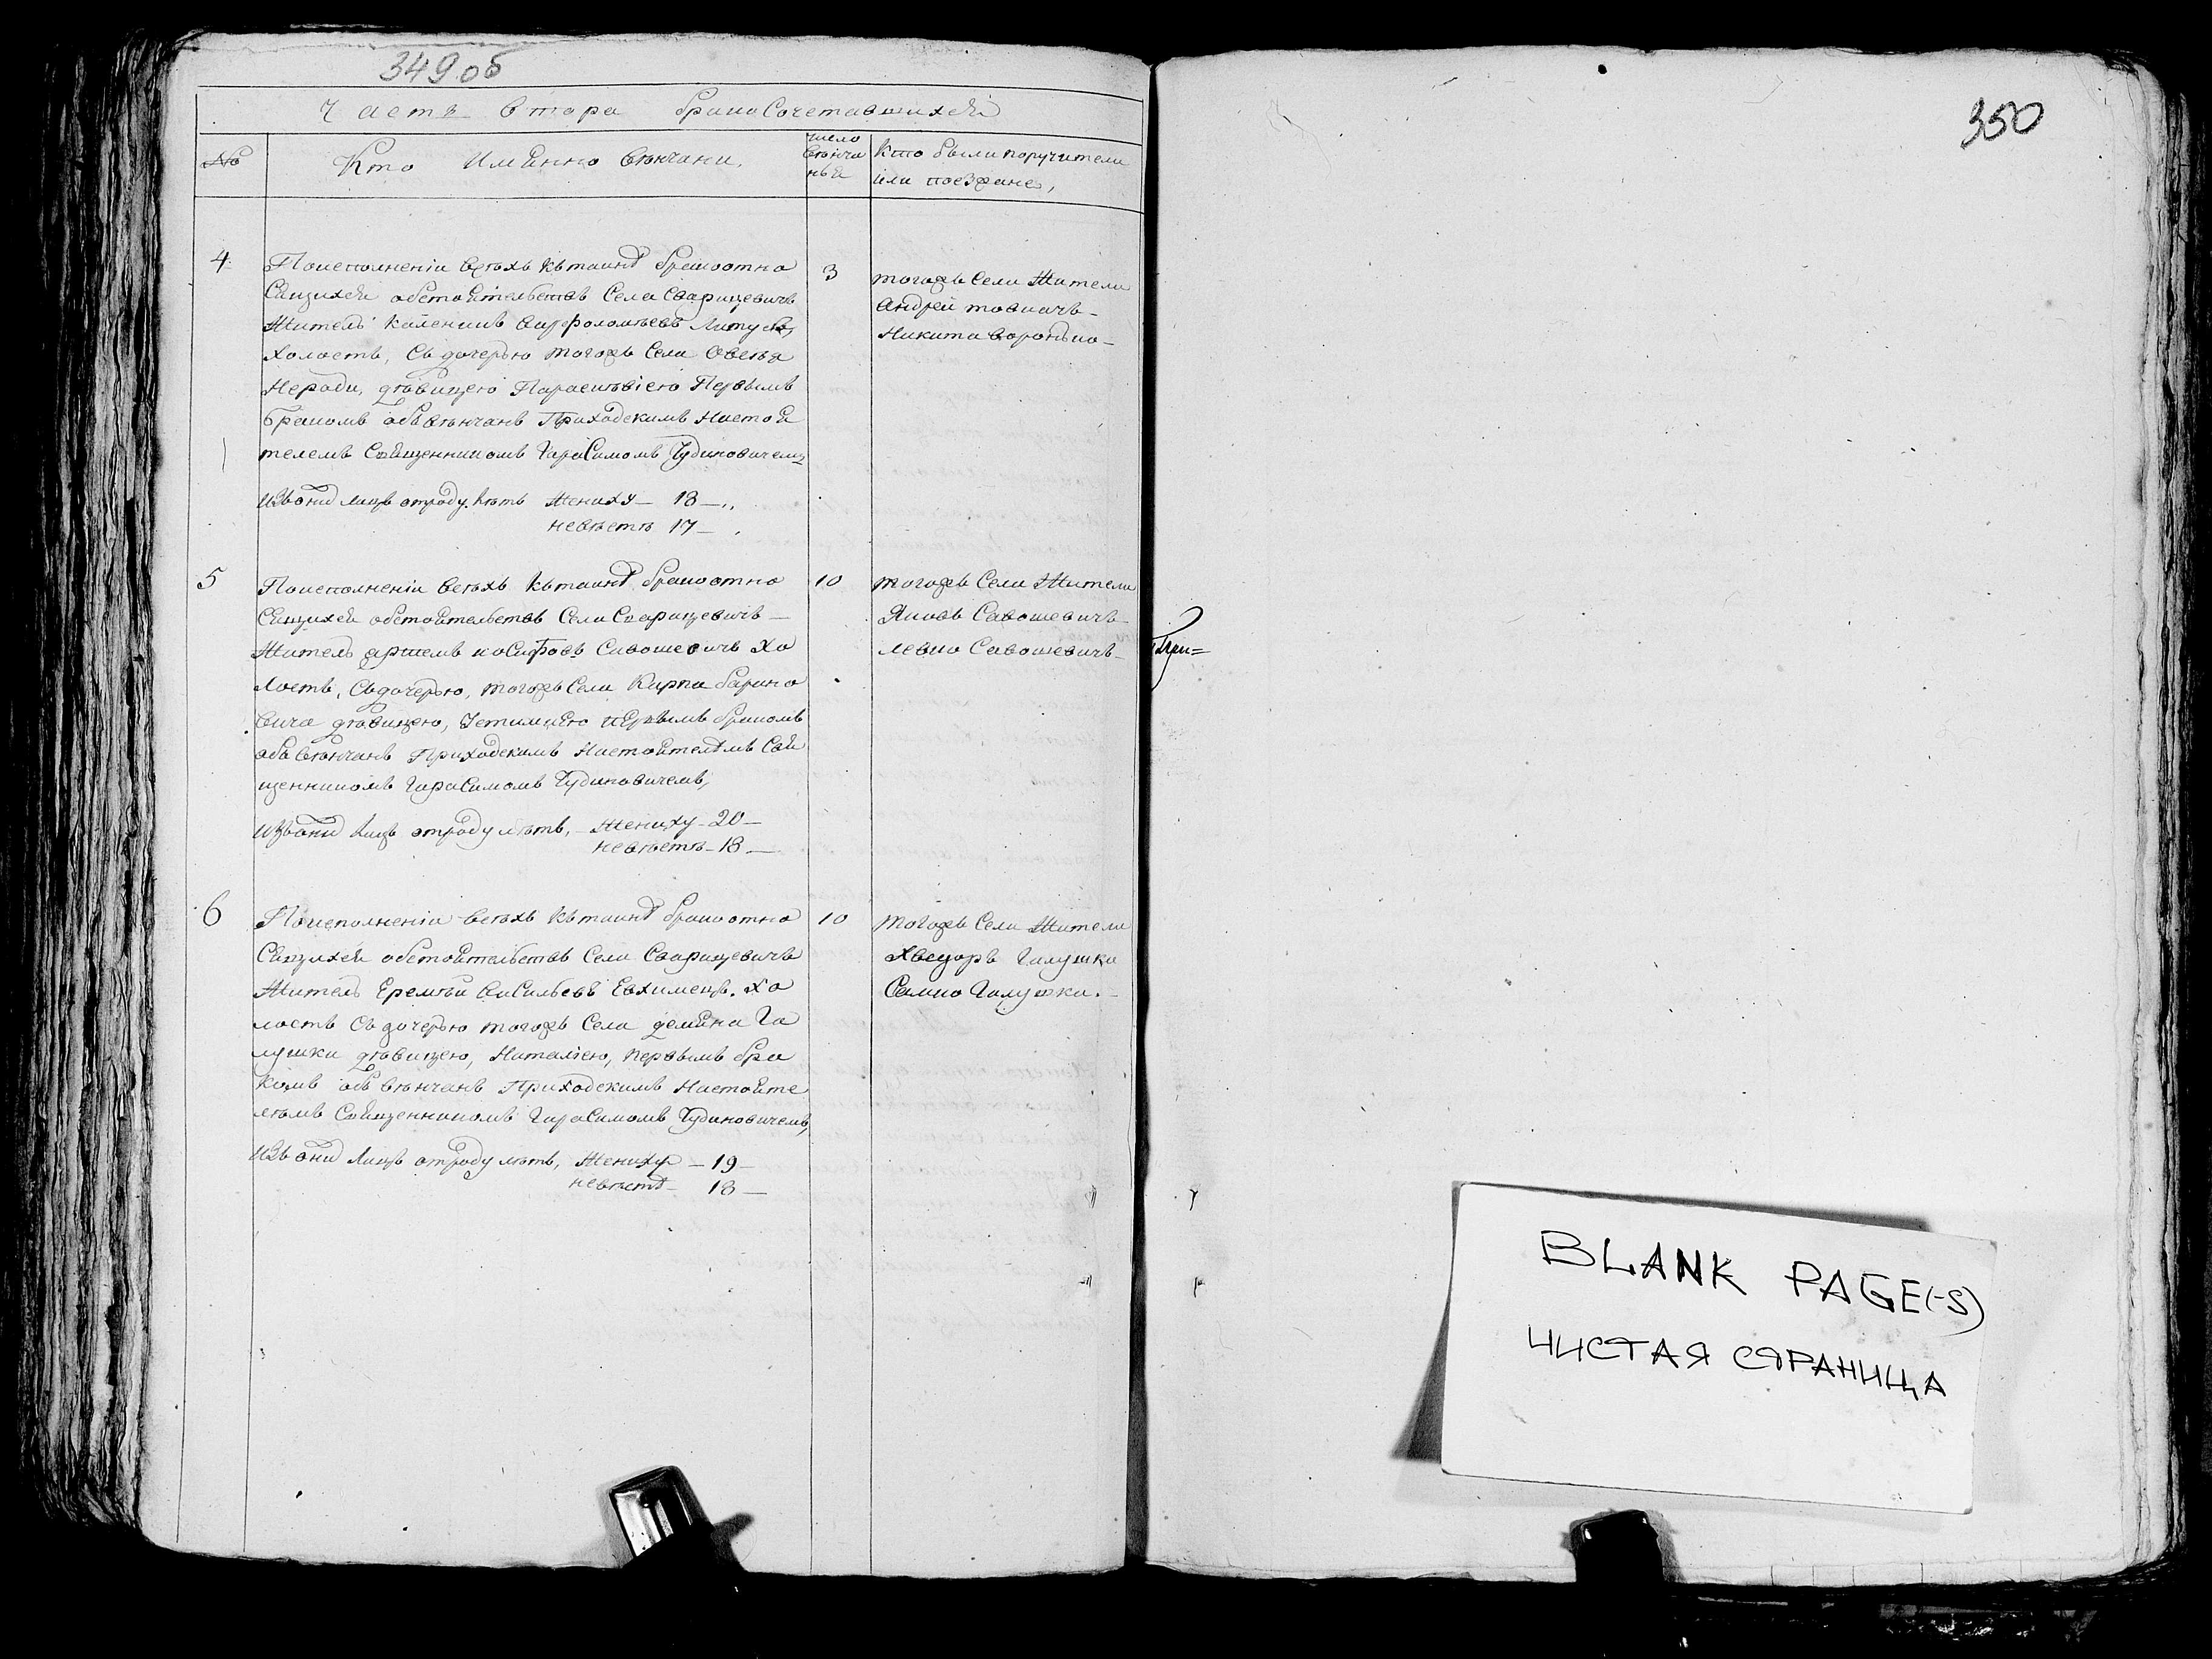 349 об
Часть втора бракосочетавшихся
№
Кто имянно венчани.
число венчания
кто были поручители или поезжане,
4
Поисполнении всехъ къ таинѣ брака относящихся обстоятельствъ Села Сварицевичъ
Житель Варфоломѣевъ
холостъ, съ дочерью тогожъ Села
дѣвицею Параскѣвіею Первымъ
бракомъ обвѣнчанъ Приходскимъ Настоя
телемъ Священникомъ Гарасимомъ Чудиновичемъ
изъ онихъ лицъ отроду лѣтъ Жениху — 18 —
невѣстѣ 17 —
3
тогожъ Села Жители
Андрей товкачъ —
Никита
5
Поисполненіи всѣхъ къ таинѣ брака отно
сящихся обстоятельствъ Села Сварицевичъ —
Житель иосифовъ Савошевичъ хо
лостъ, съ дочерью, тогожъ Села Карпа
вича дѣвицею, первымъ бракомъ
обвѣнчанъ Приходскимъ Настоятелѣмъ Свя
щенникомъ Гарасимомъ Чудиновичемъ,
изъ онихъ лицъ отроду лѣтъ, — Жениху — 20 —
невѣстѣ — 18 —
10
тогожъ Села Жители
Яковъ Савошевичъ
левко Савошевичъ —
6
Поисполненіи всѣхъ къ таинѣ брака отно
сящихся обстоятельствъ Села Сварицевичъ
Житель Еремѣй Васильевъ Евхимецъ. хо
лостъ съ дочерью тогожъ Села демяна Га
лушки дѣвицею, Наталіею, первымъ бра
комъ обвѣнчанъ Приходскимъ Настояте
лѣмъ Священникомъ Гарасимомъ Чудиновичемъ,
изъ онихъ лицъ отроду лѣтъ, Жениху — 19 —
невѣстѣ — 18 —
10
тогожъ Села Жители
Хведоръ Галушка
Семко Галушка. —
350
BLANK PAGE(-S)
ЧИСТАЯ СТРАНИЦА